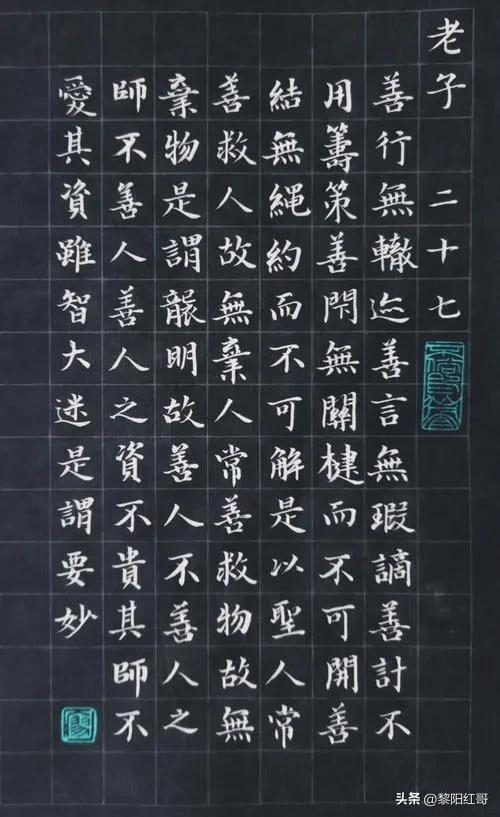 老子 二十七
善行無轍迹善言無瑕謫善計不
用籌策善閇無關楗而不可開善
結無繩約而不可解是以聖人常
善救人故無棄人常善救物故無
棄物是謂襲明故善人不善人之
師不善人善人之資不貴其師不
愛其資雖智大迷是謂要妙
头条 @黎阳红哥